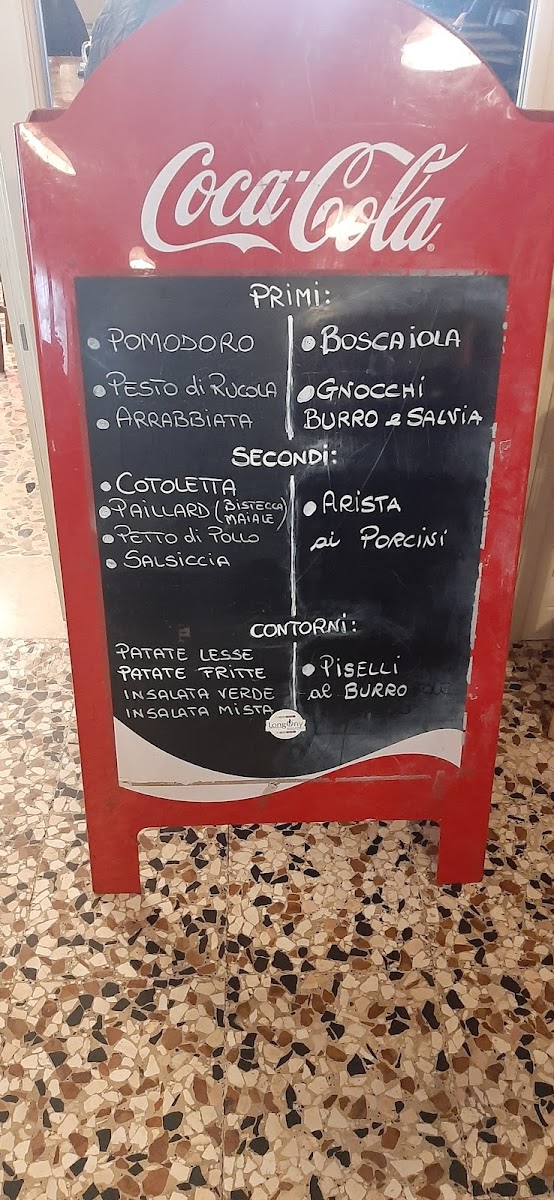 Coca-Cola
PRIMI:
POMODORO
PESTO di RUCOLA
ARRABBIATA
BOSCAIOLA
GNOCCHI
BURRO e SALVIA
SECONDI:
COTOLETTA
PAILLARD (BISTECCA
MAIALE)
PETTO di POLLO
SALSICCIA
ARISTA
ai PORCINI
CONTORNI:
PATATE LESSE
PATATE FRITTE
INSALATA VERDE
INSALATA MISTA
PISELLI
al BURRO